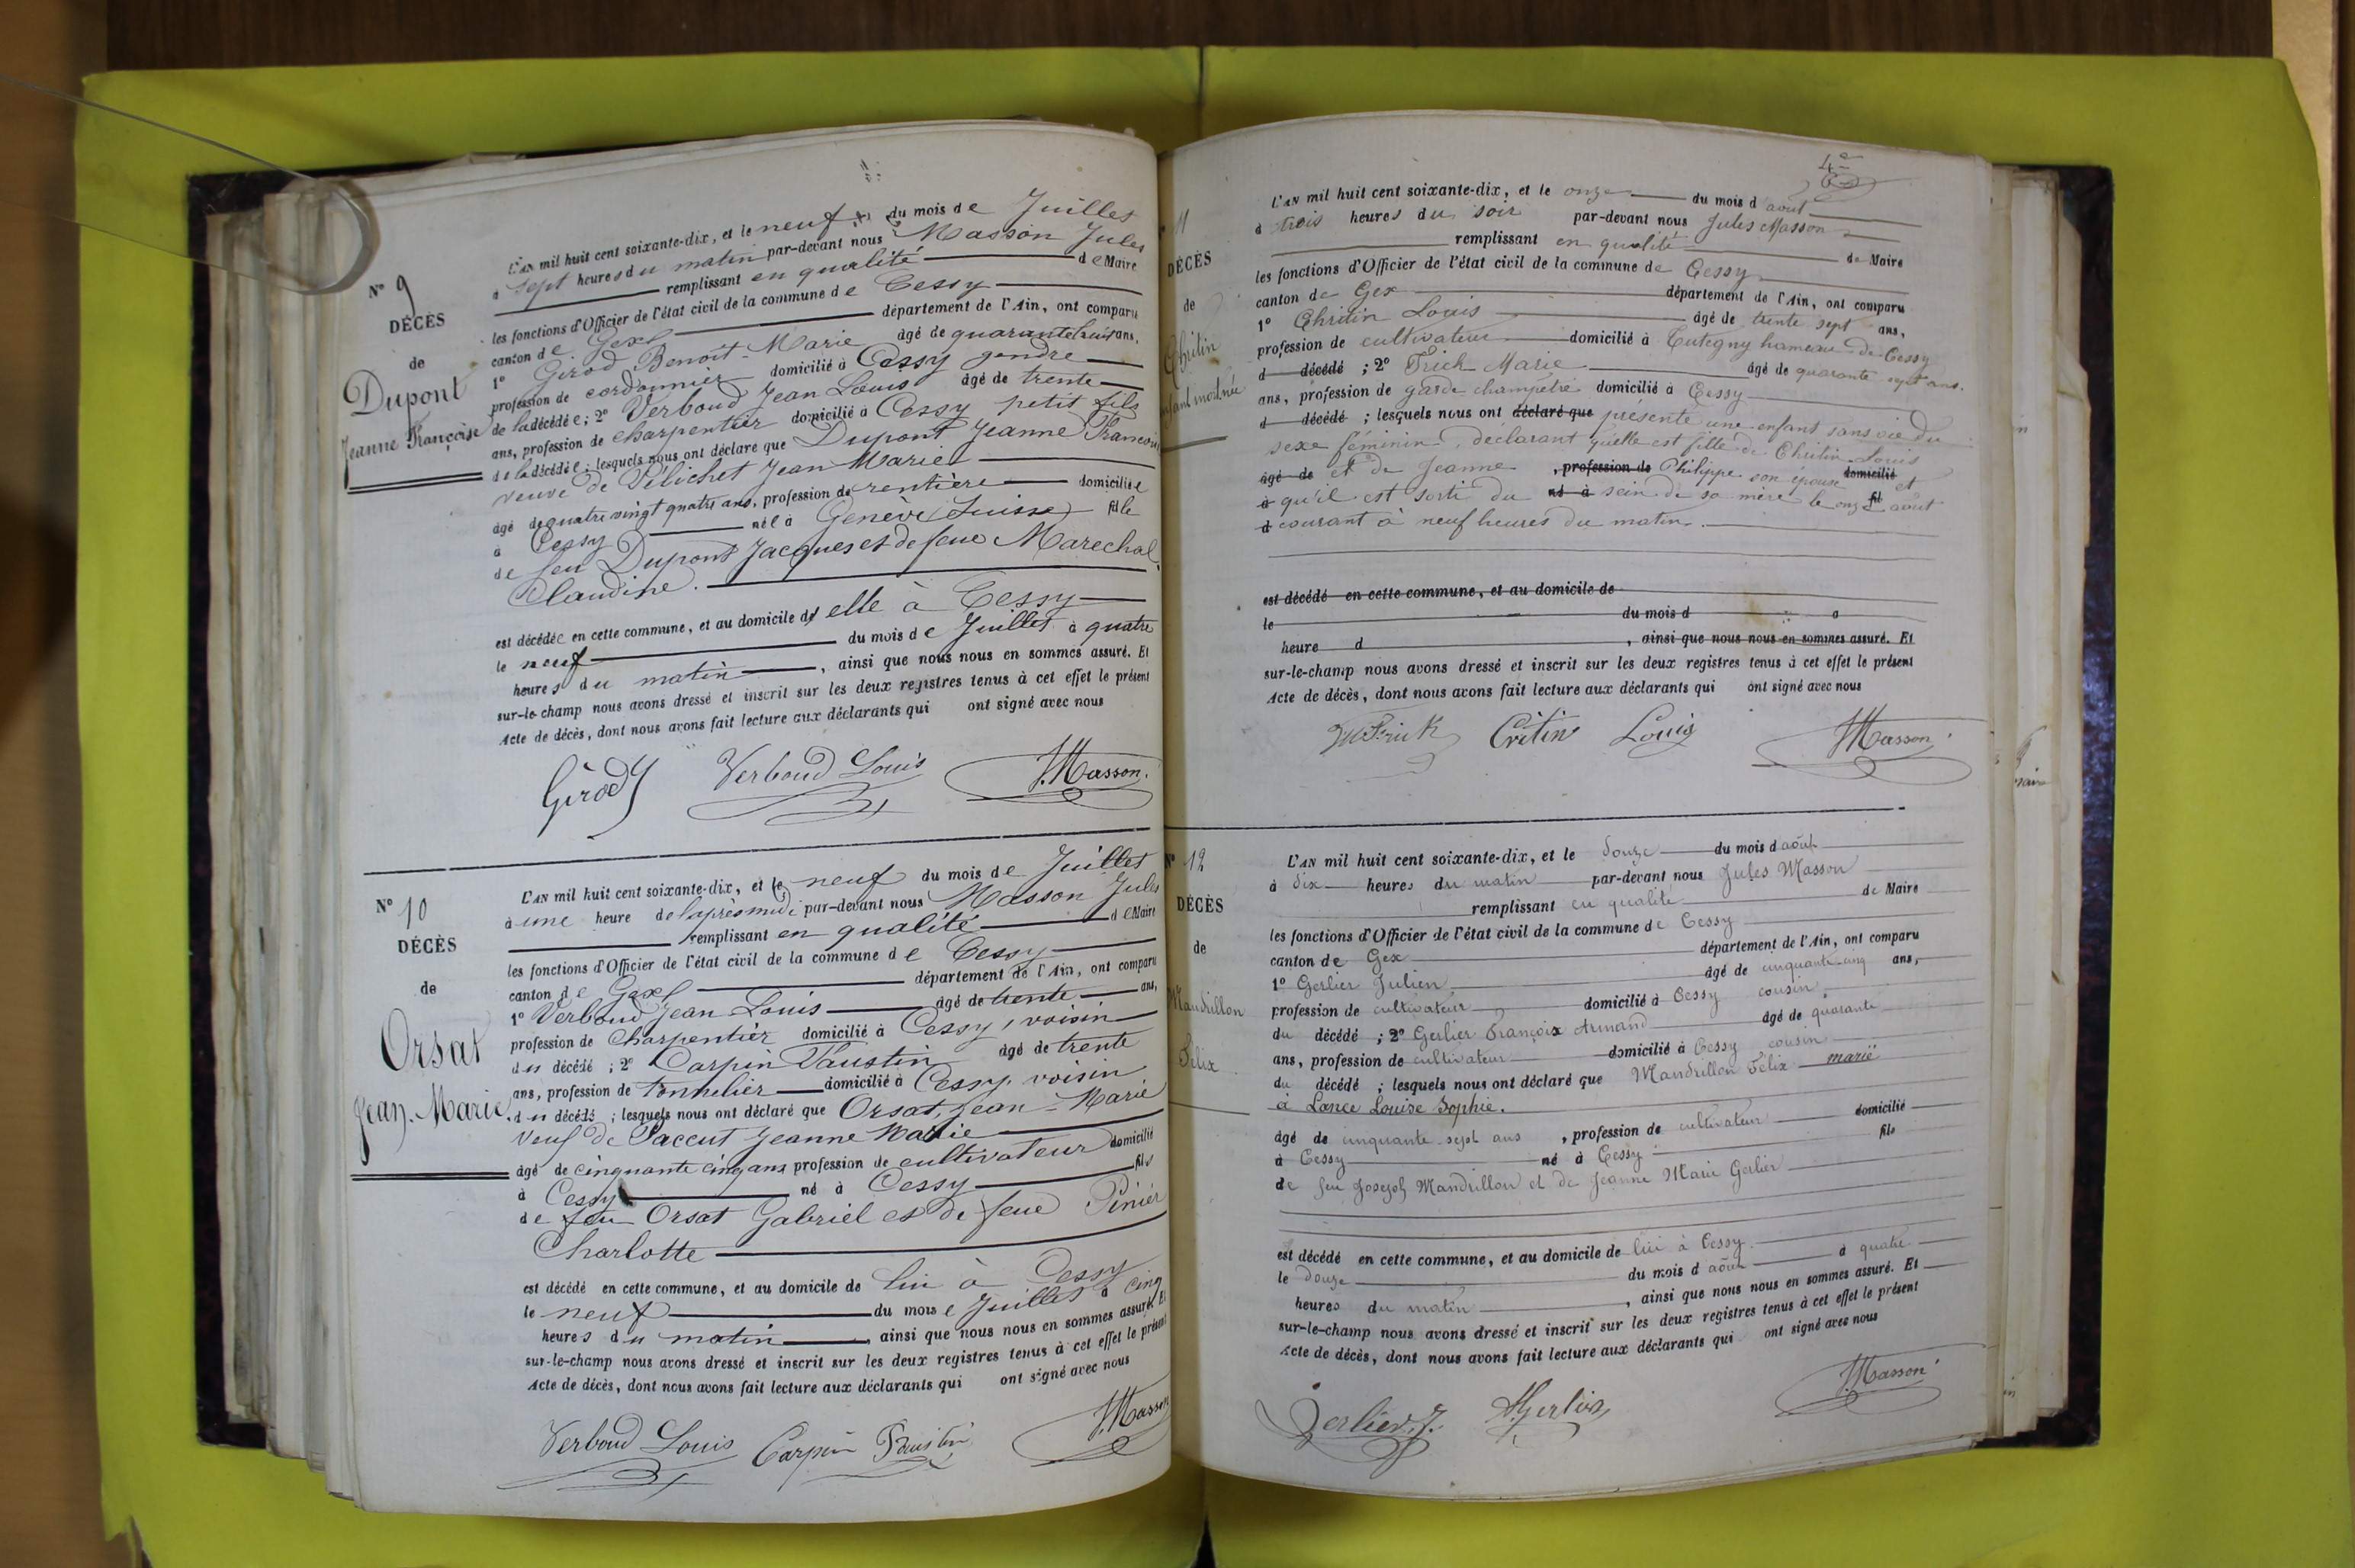 N° 9
DÉCÈS
de
Dupont
Jeanne Françoise
L'AN mil huit cent soixante-dix, et le neuf du mois de Juillet
à sept heures du matin par-devant nous Masson Jules
remplissant en qualité de Maire
les fonctions d'Officier de l'état civil de la commune de Cessy
canton de Gex département de l'Ain, ont comparu
1° Girod Benoît-Marie âgé de quarante huit ans,
profession de cordonnier domicilié à Cessy gendre
de la décédée ; 2° Verboud Jean Louis âgé de trente
ans, profession de charpentier domicilié à Cessy petit fils
de la décédée ; lesquels nous ont déclaré que Dupont Jeanne Françoise
veuve de Pélichet Jean Marie
âgé de quatre vingt quatre ans, profession de rentière domiciliée
à Cessy née à Genève (Suisse) fille
de feu Dupont Jacques et de feue Marechal
Claudine.
est décédée en cette commune, et au domicile d' elle à Cessy
le neuf du mois de Juillet à quatre
heures du matin, ainsi que nous nous en sommes assuré. Et
sur-le-champ nous avons dressé et inscrit sur les deux registres tenus à cet effet le présent
Acte de décès, dont nous avons fait lecture aux déclarants qui ont signé avec nous
Girod Verboud Louis J. Masson.
N° 10
DÉCÈS
de
Orsat
Jean-Marie.
L'AN mil huit cent soixante-dix, et le neuf du mois de Juillet
à une heure de l'après midi par-devant nous Masson Jules
remplissant en qualité de Maire
les fonctions d'Officier de l'état civil de la commune de Cessy
canton de Gex département de l'Ain, ont comparu
1° Verboud Jean Louis âgé de trente ans,
profession de Charpentier domicilié à Cessy, voisin
du décédé ; 2° Carpin Faustin âgé de trente
ans, profession de tonnelier domicilié à Cessy, voisin
du décédé ; lesquels nous ont déclaré que Orsat, Jean-Marie
veuf de Paccut Jeanne Marie
âgé de cinquante cinq ans profession de cultivateur domicilié
à Cessy né à Cessy fils
de feu Orsat Gabriel et de feue Pinier
Charlotte
est décédé en cette commune, et au domicile de lui à Cessy
le neuf du mois e Juillet à cinq
heures du matin, ainsi que nous nous en sommes assuré. Et
sur-le-champ nous avons dressé et inscrit sur les deux registres tenus à cet effet le présent
Acte de décès, dont nous avons fait lecture aux déclarants qui ont signé avec nous
Verboud Louis Carpin Faustin J. Masson
4e
11
DÉCÈS
de
Chritin
enfant mort née
L'AN mil huit cent soixante-dix, et le onze du mois d'août
à trois heures du soir par-devant nous Jules Masson
remplissant en qualité de Maire
les fonctions d'Officier de l'état civil de la commune de Cessy
canton de Gex département de l'Ain, ont comparu
1° Chritin Louis âgé de trente sept ans,
profession de cultivateur domicilié à Tutegny hameau de Cessy
d décédé ; 2° Frick Marie âgé de quarante sept ans.
ans, profession de garde champêtre domicilié à Cessy
d décédé ; lesquels nous ont déclaré que présenté une enfans sans vie du
sexe féminin, déclarant qu'elle est fille de Chritin Louis
âgé de et de Jeanne , profession de Philippe son épouse domicilié et
à qu'il est sorti du né à sein de sa mère le onze fil août
d courant à neuf heures du matin.
est décédé en cette commune, et au domicile de
le du mois d à
heure d , ainsi que nous nous en sommes assuré. Et
sur-le-champ nous avons dressé et inscrit sur les deux registres tenus à cet effet le présent
Acte de décès, dont nous avons fait lecture aux déclarants qui ont signé avec nous
Frick Critin Louis J. Masson
N° 12
DÉCÈS
de
Mandrillon
Félix
L'AN mil huit cent soixante-dix, et le douze du mois d'août
à dix heures du matin par-devant nous Jules Masson
remplissant en qualité de Maire
les fonctions d'Officier de l'état civil de la commune de Cessy
canton de Gex département de l'Ain, ont comparu
1° Gerlier Julien âgé de cinquante-cinq ans,
profession de cultivateur domicilié à Cessy cousin
du décédé ; 2° Gerlier François Armand âgé de quarante
ans, profession de cultivateur domicilié à Cessy cousin
du décédé ; lesquels nous ont déclaré que Mandrillon Félix marié
à Lance Louise Sophie.
âgé de cinquante-sept ans, profession de cultivateur domicilié
à Cessy né à Cessy fils
de feu Joseph Mandrillon et de Jeanne Marie Gerlier
est décédé en cette commune, et au domicile de lui à Cessy
le douze du mois d août à quatre
heures du matin, ainsi que nous nous en sommes assuré. Et
sur-le-champ nous avons dressé et inscrit sur les deux registres tenus à cet effet le présent
Acte de décès, dont nous avons fait lecture aux déclarants qui ont signé avec nous
Gerlier J. A Gerlier J. Masson